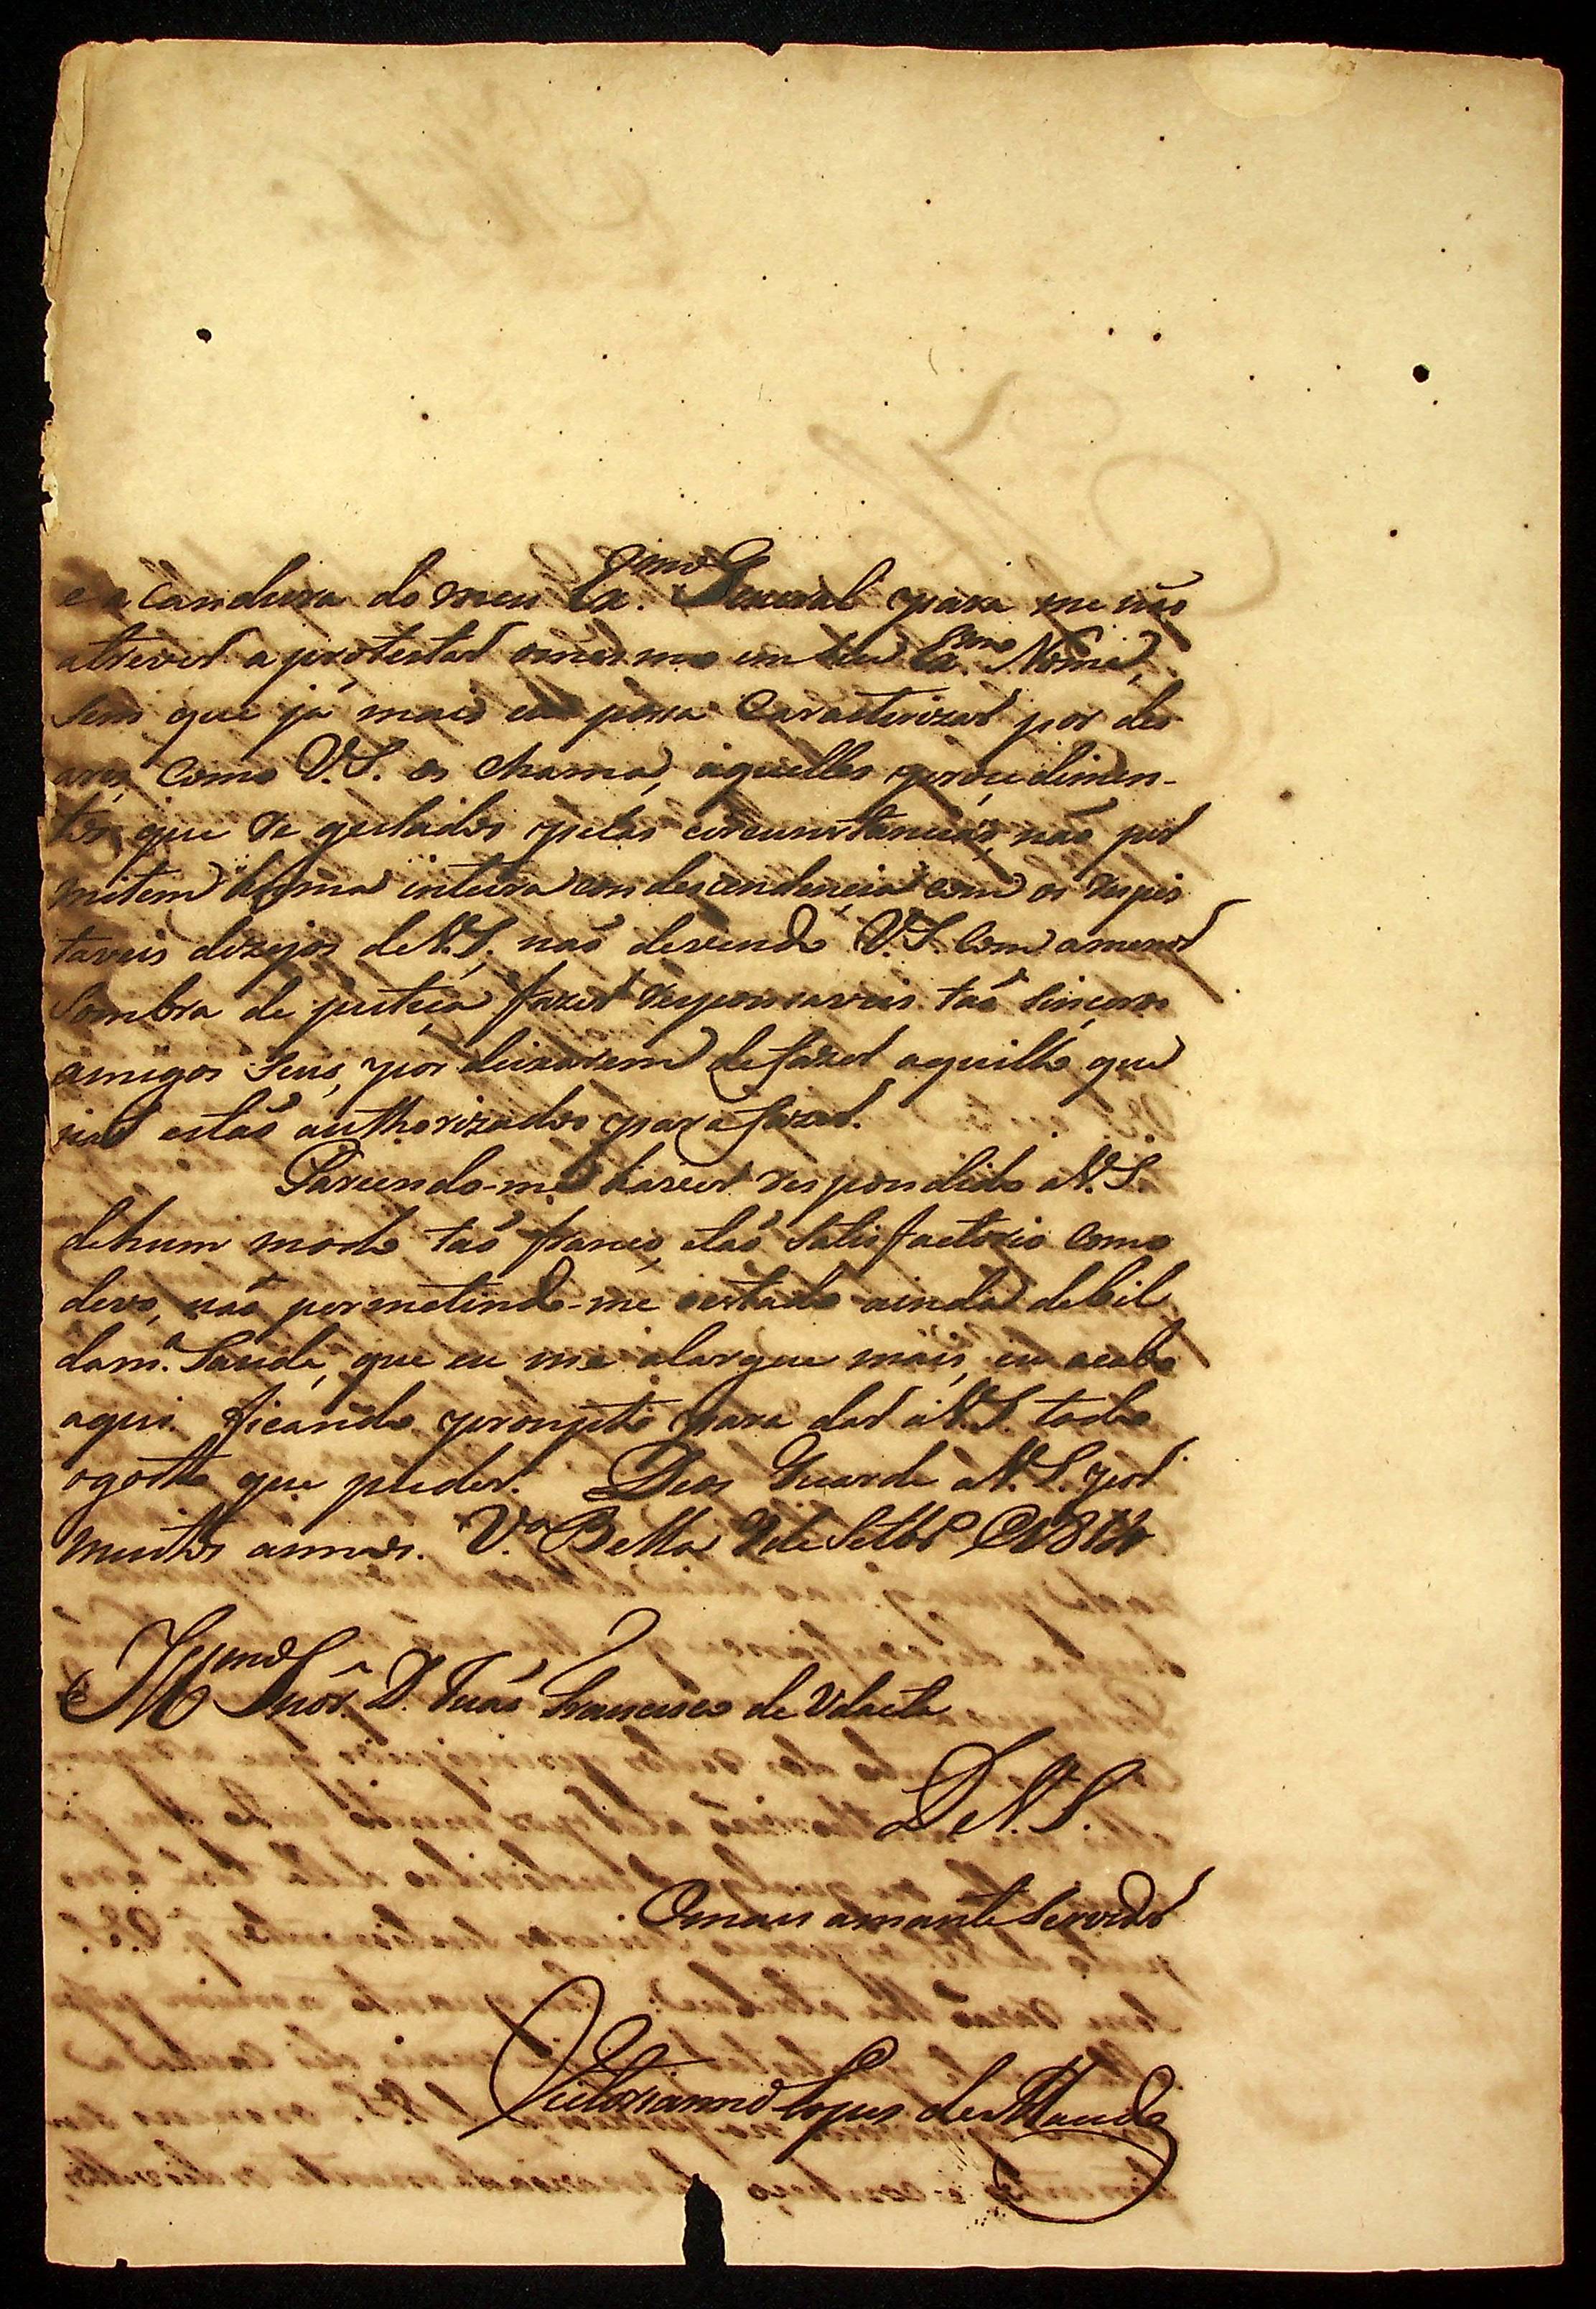 e a candura do meu Ex.mo General para me não
atrever a protestar o mesmo em seu Ex.mo Nome,
sem que já mais eu possa caracterizar por des
ares, como V.S. os chama, aquelles procedimen-
tos, que regulados pelas circunstancias, não per
mitem huma inteira condescendencia com os respei
taveis dezejos de V.S. não devendo V.S. com a menor
sombra de justiça fazer responsaveis taõ sinceros
amigos seus, por deixarem de fazer aquillo que
não estaõ authorizados para fazer.
Parecendo-me haver respondido a V.S.
de hum modo taõ franco, e taõ satisfactorio como
devo, não permetindo-me o estado ainda debil
da m.a Saude, que eu me alargue mais, eu acabo
aqui ficando prompto para dar a V.S. todo
o gosto que puder. Deos Guarde a V.S. por
muitos annos. V.a Bella de Setbr.o
Ill.mo Snor. D. Juaõ Francisco de Udaeta
De V.S.
O mais amante Servidor
Victorianno Lopes de Macedo